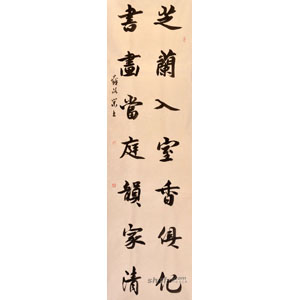 芝蘭入室香俱化
書畫當庭韻家清